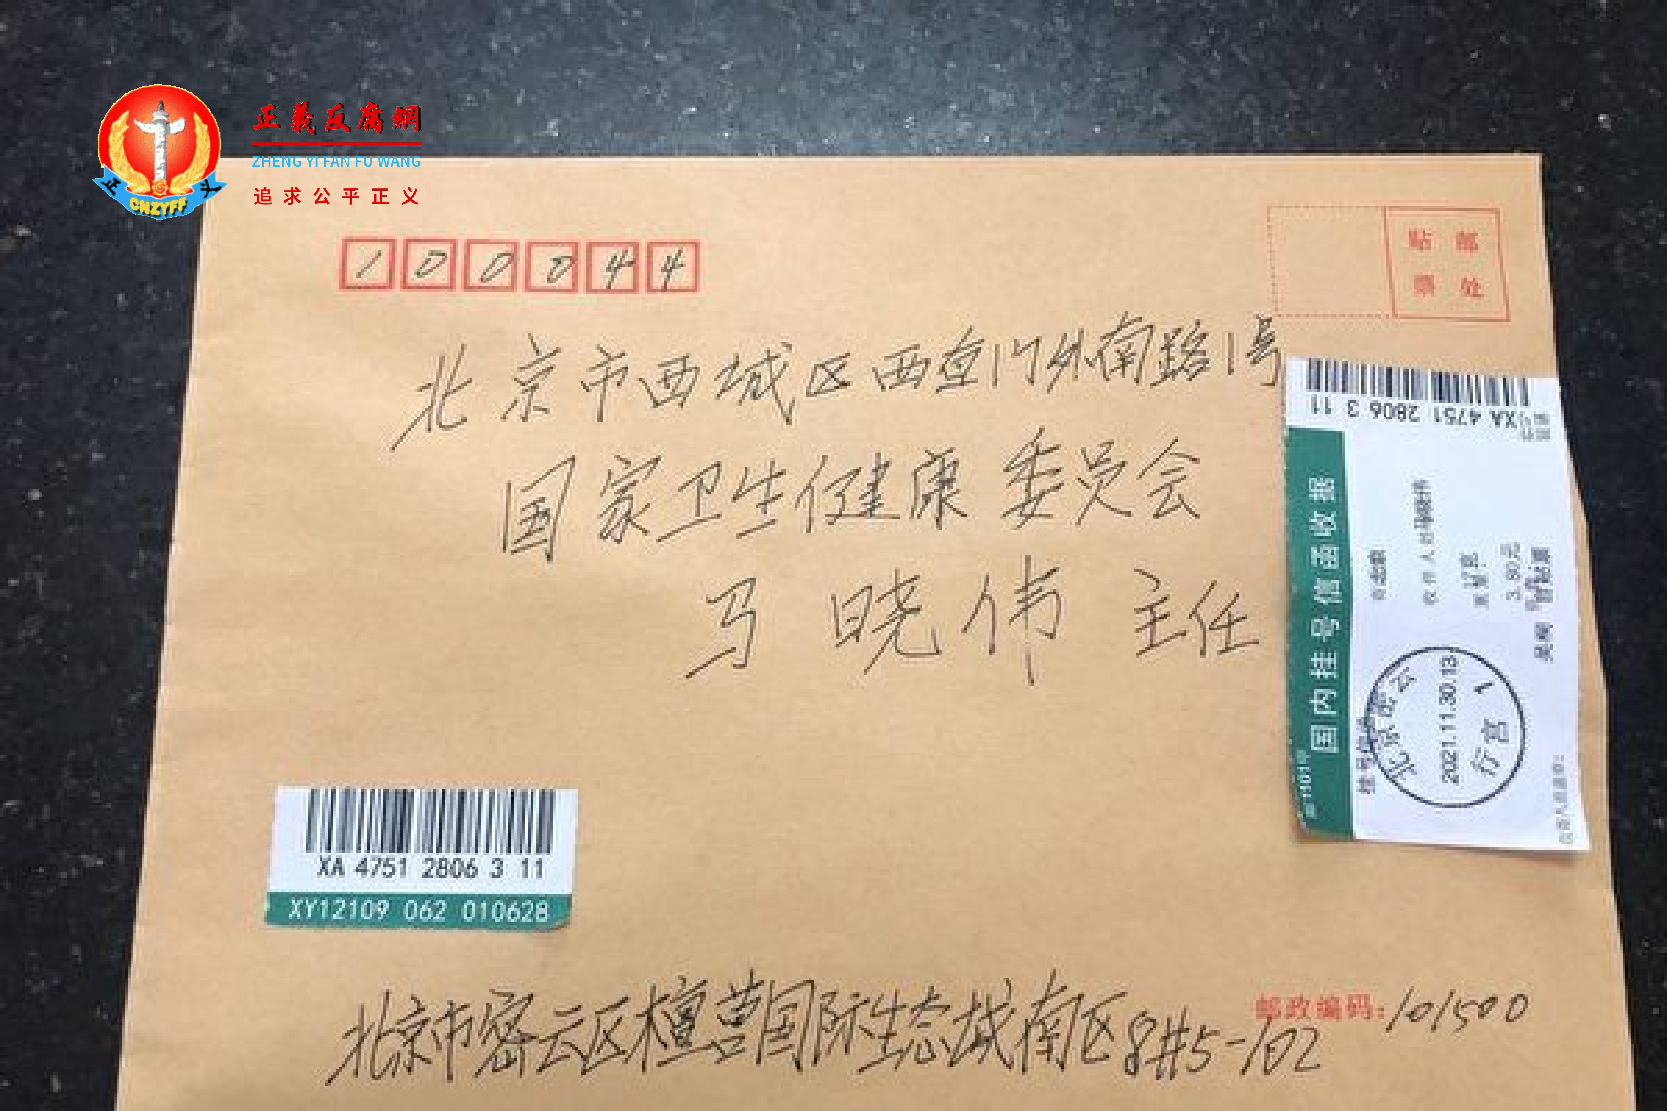 正義反腐網
ZHENG YI FAN FU WANG
追求公平正义
正 义
CNZYFF
100044
贴 邮
票 处
北京市西城区西直门外南路1号
国家卫生健康委员会
马晓伟 主任
XA 4751 2806 3 11
国内挂号信函收据
收件人
3.80元
北京密云
2021.11.30.13
行宫
1
XA 4751 2806 3 11
XY12109 062 010628
邮政编码:101500
北京市密云区檀营国际生态城南区8#5-102